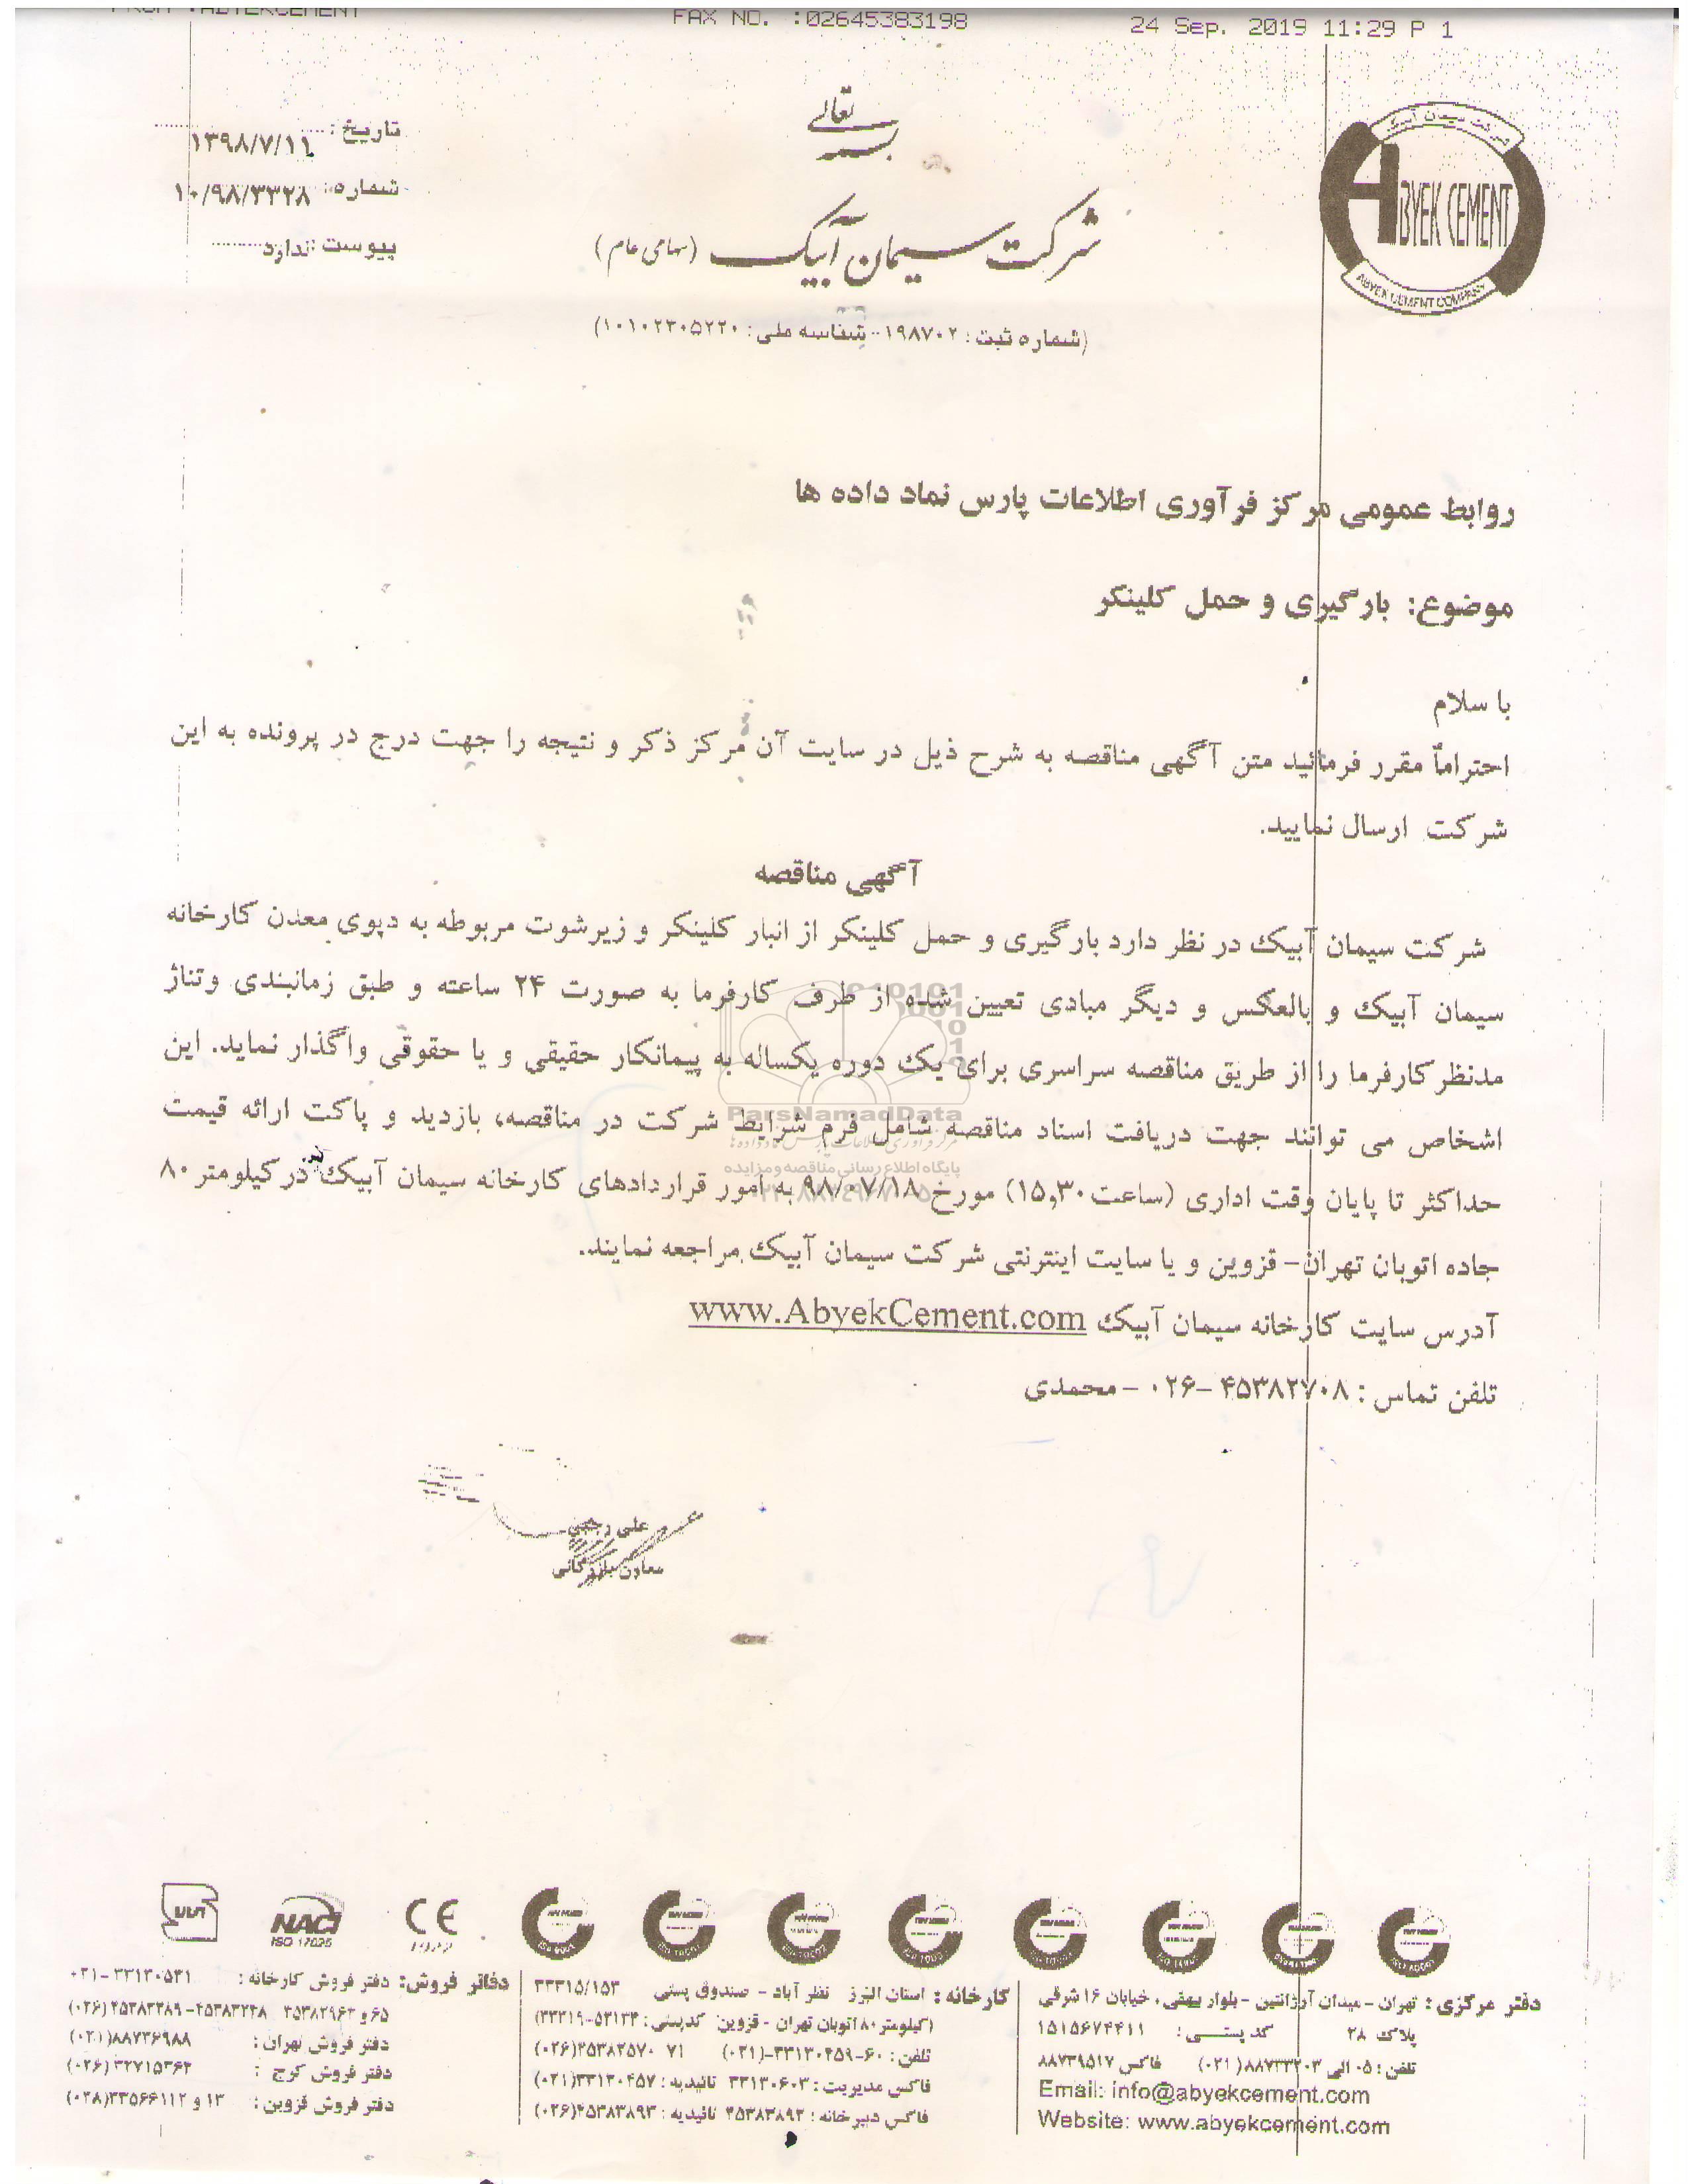 FROM :ABYEKCEMENT FAX NO. :02645383198 24 Sep. 2019 11:29 P 1
بسمه تعالی
شرکت سیمان آبیک
ABYEK CEMENT
ABYEK CEMENT COMPANY
تاریخ : ۱۳۹۸/۷/۱۱
شماره: ۱۰/۹۸/۳۳۲۸
پیوست :ندارد
شرکت سیمان آبیک (سهامی عام)
(شماره ثبت : ۱۹۸۷۰۲ - شناسه ملی : ۱۰۱۰۲۳۰۵۲۲۰)
روابط عمومی مرکز فرآوری اطلاعات پارس نماد داده ها
موضوع: بارگیری و حمل کلینکر
با سلام
احتراماً مقرر فرمائید متن آگهی مناقصه به شرح ذیل در سایت آن مرکز ذکر و نتیجه را جهت درج در پرونده به این
شرکت ارسال نمایید.
آگهی مناقصه
شرکت سیمان آبیک در نظر دارد بارگیری و حمل کلینکر از انبار کلینکر و زیرشوت مربوطه به دپوی معدن کارخانه
سیمان آبیک و بالعکس و دیگر مبادی تعیین شده از طرف کارفرما به صورت ۲۴ ساعته و طبق زمانبندی وتناژ
مدنظر کارفرما را از طریق مناقصه سراسری برای یک دوره یکساله به پیمانکار حقیقی و یا حقوقی واگذار نماید. این
اشخاص می توانند جهت دریافت اسناد مناقصه شامل فرم شرایط شرکت در مناقصه، بازدید و پاکت ارائه قیمت
حداکثر تا پایان وقت اداری (ساعت ۱۵,۳۰) مورخ ۹۸/۰۷/۱۸ به امور قراردادهای کارخانه سیمان آبیک در کیلومتر ۸۰
جاده اتوبان تهران- قزوین و یا سایت اینترنتی شرکت سیمان آبیک مراجعه نمایند.
آدرس سایت کارخانه سیمان آبیک www.AbyekCement.com
تلفن تماس : ۴۵۳۸۲۷۰۸ -۰۲۶ - محمدی
ParsNamadData
پایگاه اطلاع رسانی مناقصه و مزایده
علی رجبی
معاون بازرگانی
NACI
ISO 17025
CE
دفتر مرکزی : تهران - میدان آرژانتین - بلوار بیهقی ، خیابان ۱۶ شرقی
پلاک ۲۸ کد پستـی : ۱۵۱۵۶۷۴۴۱۱
تلفن : ۰۵ الی ۸۸۷۳۳۲۰۳ (۰۲۱) فاکس ۸۸۷۳۹۵۱۷
Email: info@abyekcement.com
Website: www.abyekcement.com
کارخانه : استان البرز نظر آباد - صندوق پستی ۳۳۳۱۵/۱۵۳
(کیلومتر ۸۰ اتوبان تهران - قزوین کدپستی : ۵۳۱۳۴-۳۳۳۱۹)
تلفن : ۶۰-۳۳۱۳۰۴۵۹-(۰۲۱) ۷۱ ۴۵۳۸۲۵۷۰(۰۲۶)
فاکس مدیریت : ۳۳۱۳۰۶۰۳ تائیدیه : ۳۳۱۳۰۴۵۷(۰۲۱)
فاکس دبیرخانه : ۴۵۳۸۳۸۹۲ تائیدیه : ۴۵۳۸۳۸۹۳(۰۲۶)
دفاتر فروش: دفتر فروش کارخانه : ۰۲۱-۳۳۱۳۰۵۳۱
دفتر فروش تهران : ۸۸۷۳۶۹۸۸(۰۲۱)
دفتر فروش کرج : ۳۲۷۱۵۳۶۲(۰۲۶)
دفتر فروش قزوین : ۱۳ و ۳۳۵۶۶۱۱۲(۰۲۸)